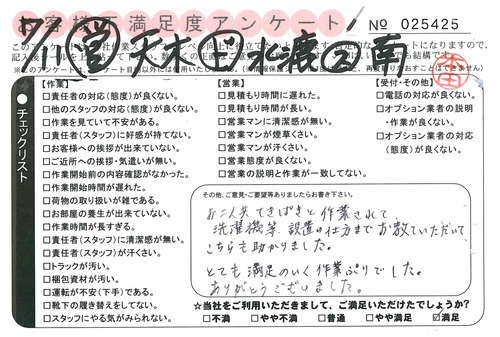 お客様不満足度アンケート
No 025425
7/1 営 天木 下 水漉 ② 南
チェックリスト
【作業】
□責任者の対応(態度)が良くない。
□他のスタッフの対応(態度)が良くない。
□作業を見ていて不安がある。
□責任者(スタッフ)に好感が持てない。
□お客様への挨拶が出来ていない。
□ご近所への挨拶・気遣いが無い。
□作業開始前の内容確認がなかった。
□作業開始時間が遅れた。
□荷物の取り扱いが雑である。
□お部屋の養生が出来ていない。
□作業時間が長すぎる。
□責任者(スタッフ)に清潔感が無い。
□責任者(スタッフ)が汗くさい。
□トラックが汚い。
□梱包資材が汚い。
□運転が不安(下手)である。
□靴下の履き替えをしてない。
□スタッフにやる気がみられない。
【営業】
□見積もり時間に遅れた。
□見積もり時間が長い。
□営業マンに清潔感が無い。
□営業マンが煙草くさい。
□営業マンが汗くさい。
□営業態度が良くない。
□営業の説明と作業が一致してない。
【受付・その他】
□電話の対応が良くない。
□オプション業者の説明
・作業が良くない。
□オプション業者の対応
(態度)が良くない。
その他、ご意見・ご要望等ありましたらお書き下さい。
お二人共てきぱきと作業されて、
洗濯機等、設置の仕方までお教ていただいて
こちらも助かりました。
とても満足のいく作業ぶりでした。
ありがとうございました。
☆当社をご利用いただきまして、ご満足いただけたでしょうか?
□不満 □やや不満 □普通 □やや満足 ☑満足